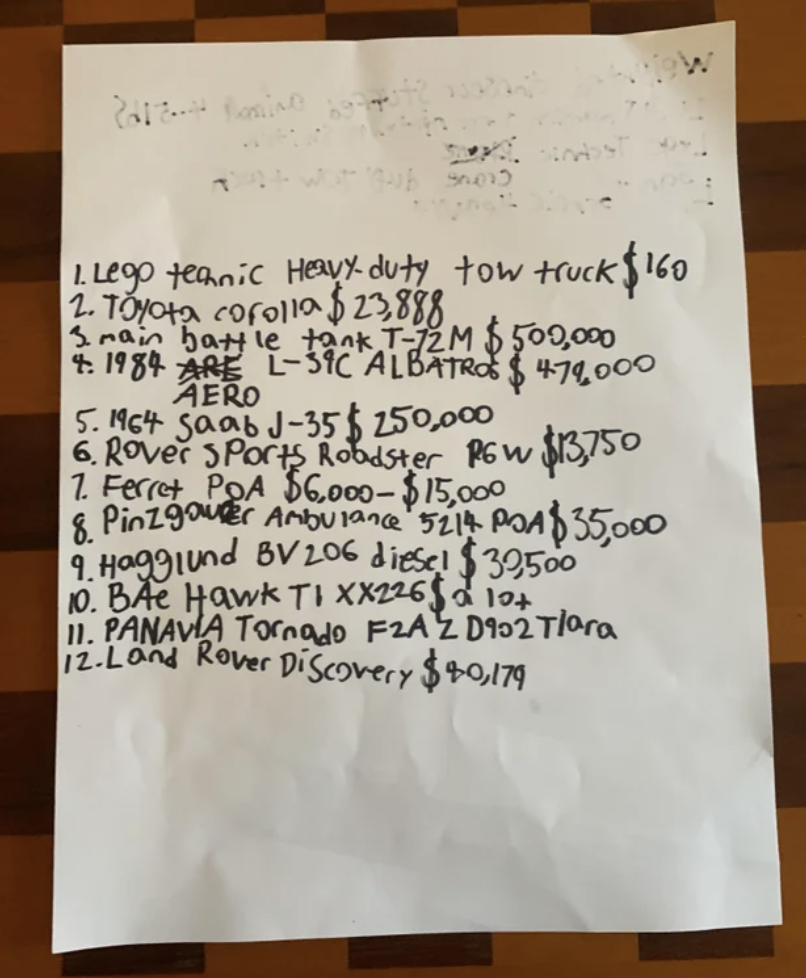 1. Lego teanic Heavy-duty tow truck $160
2. Toyota corolla $23,888
3. main battle tank T-72M $500,000
4. 1984 ARE L-39C ALBATROS $479,000
AERO
5. 1964 Saab J-35 $250,000
6. Rover sports Roadster P6W $13,750
7. Ferret POA $6,000-$15,000
8. Pinzgauer Ambulance 5214 POA $35,000
9. Hagglund BV206 diesel $39,500
10. BAe Hawk T1 XX226 $a lot
11. PANAVIA Tornado F2A ZD902 Tiara
12. Land Rover Discovery $,179